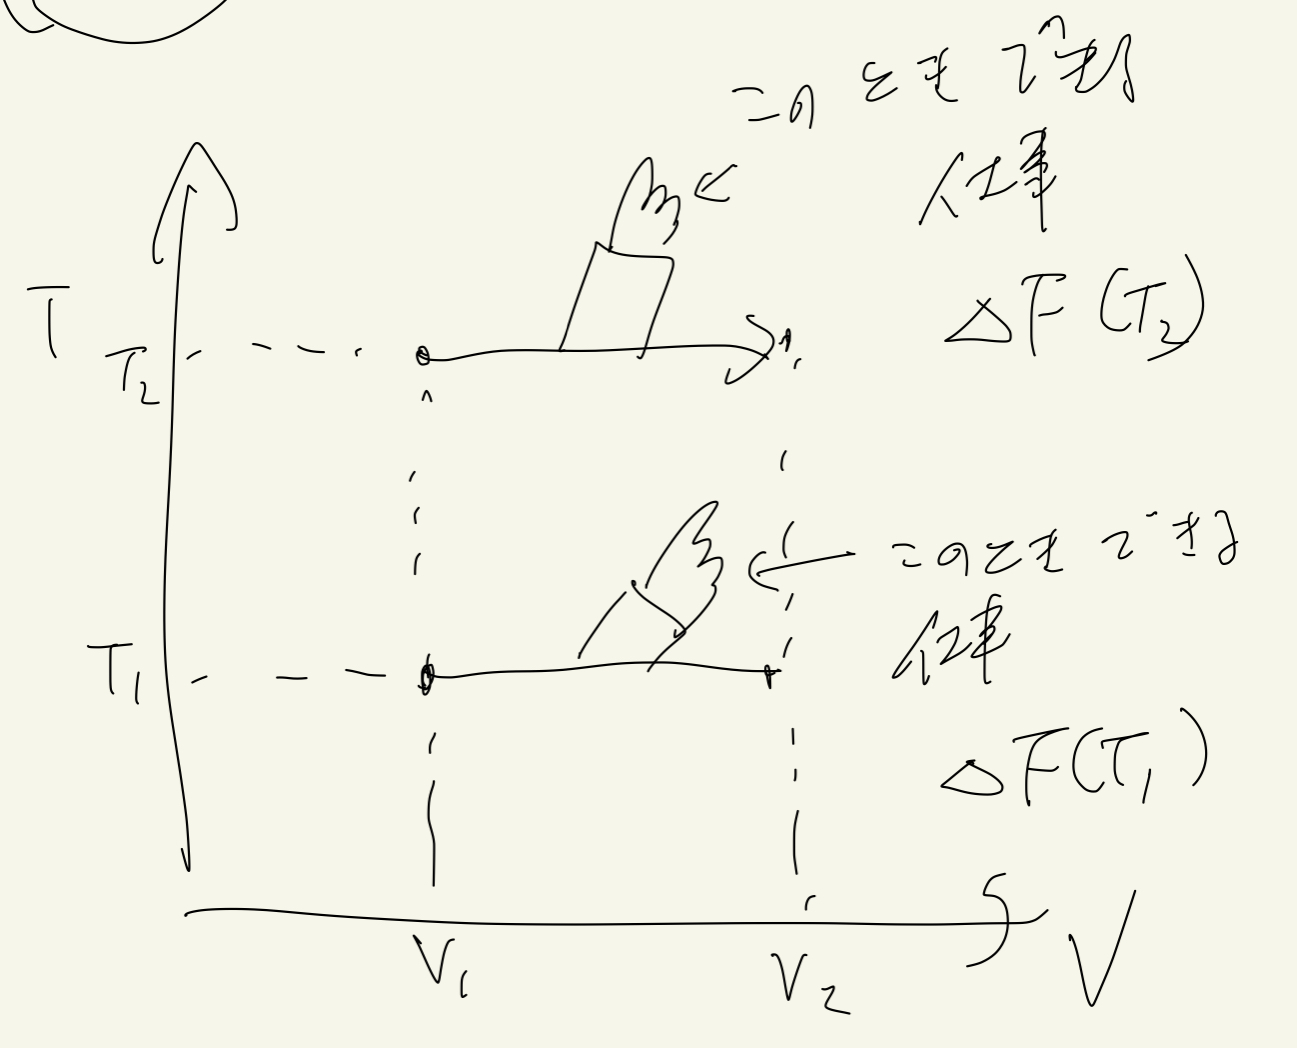 このときできる
仕事
ΔF(T₂)
T
T₂
このときできる
仕事
ΔF(T₁)
T₁
V₁
V₂
V